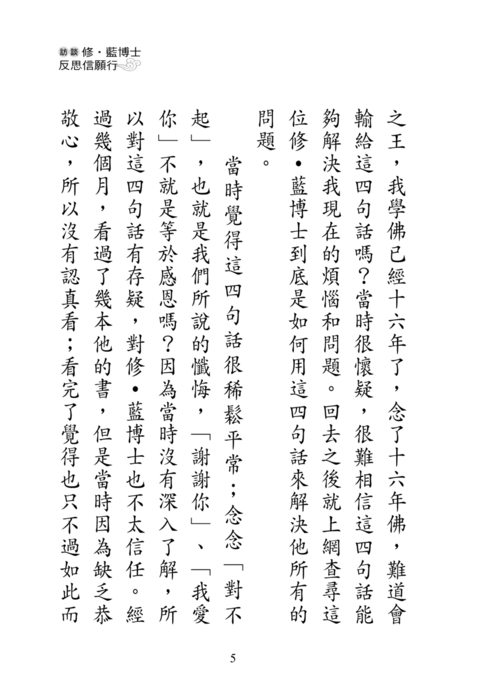 訪談 修・藍博士
反思信願行
之王，我學佛已經十六年了，念了十六年佛，難道會
輸給這四句話嗎？當時很懷疑，很難相信這四句話能
夠解決我現在的煩惱和問題。回去之後就上網查尋這
位修・藍博士到底是如何用這四句話來解決他所有的
問題。
當時覺得這四句話很稀鬆平常；念念「對不
起」，也就是我們所說的懺悔，「謝謝你」、「我愛
你」不就是等於感恩嗎？因為當時沒有深入了解，所
以對這四句話有存疑，對修・藍博士也不太信任。經
過幾個月，看過了幾本他的書，但是當時因為缺乏恭
敬心，所以沒有認真看；看完了覺得也只不過如此而
5